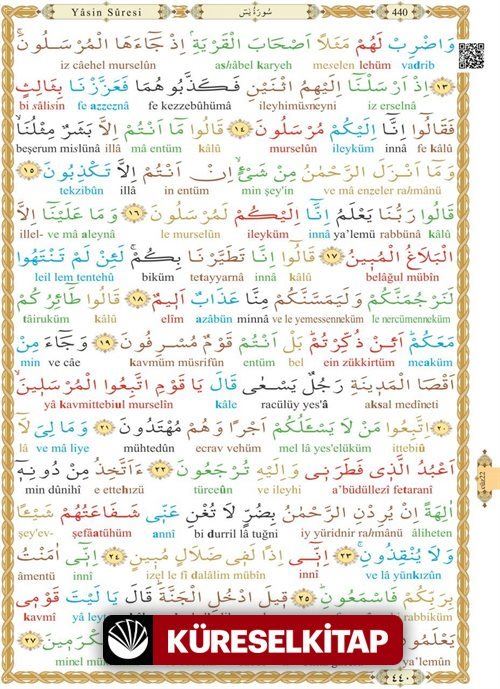 Yâsin Sûresi سُورَةُ يٰسٓ 440
وَاضْرِبْ لَهُمْ مَثَلًا اَصْحَابَ الْقَرْيَةِۢ اِذْ جَٓاءَهَا الْمُرْسَلُونَۚ
iz câehel murselûn ashâbel karyeh meselen lehüm vadrib
﴿١٣﴾ اِذْ اَرْسَلْنَٓا اِلَيْهِمُ اثْنَيْنِ فَكَذَّبُوهُمَا فَعَزَّزْنَا بِثَالِثٍ
bi sâlisin fe azzeznâ fe kezzebûhümâ ileyhimüsneyni iz erselnâ
فَقَالُٓوا اِنَّٓا اِلَيْكُمْ مُرْسَلُونَ ﴿١٤﴾ قَالُوا مَٓا اَنْتُمْ اِلَّا بَشَرٌ مِثْلُنَاۙ
beşerum mislünâ illâ mâ entüm kâlû murselûn ileyküm innâ fe kâlû
وَمَٓا اَنْزَلَ الرَّحْمٰنُ مِنْ شَيْءٍۙ اِنْ اَنْتُمْ اِلَّا تَكْذِبُونَ ﴿١٥﴾
tekzibûn illâ in entüm min şey'in ve mâ enzeler rahmânü
قَالُوا رَبُّنَا يَعْلَمُ اِنَّٓا اِلَيْكُمْ لَمُرْسَلُونَ ﴿١٦﴾ وَمَا عَلَيْنَٓا اِلَّا
illel- ve mâ aleynâ le murselûn ileyküm innâ ya'lemü rabbünâ kâlû
الْبَلَاغُ الْمُبِينُ ﴿١٧﴾ قَالُٓوا اِنَّا تَطَيَّرْنَا بِكُمْۚ لَئِنْ لَمْ تَنْتَهُوا
leil lem tentehû biküm tetayyarnâ innâ kâlû belâğul mübîn
لَنَرْجُمَنَّكُمْ وَلَيَمَسَّنَّكُمْ مِنَّا عَذَابٌ اَلِيمٌ ﴿١٨﴾ قَالُوا طَٓائِرُكُمْ
tâiruküm kâlû elîm azâbün minnâ ve le yemessenneküm le nercümenneküm
مَعَكُمْۜ اَئِنْ ذُكِّرْتُمْۜ بَلْ اَنْتُمْ قَوْمٌ مُسْرِفُونَ ﴿١٩﴾ وَجَٓاءَ مِنْ
min ve câe kavmüm müsrifûn entüm bel ein zükkirtüm meaküm
اَقْصَا الْمَدِينَةِ رَجُلٌ يَسْعٰى قَالَ يَا قَوْمِ اتَّبِعُوا الْمُرْسَلِينَۙ
yâ kavmittebiul murselîn kâle racülüy yes'â aksal medîneti
﴿٢٠﴾ اِتَّبِعُوا مَنْ لَا يَسْـَٔلُكُمْ اَجْرًا وَهُمْ مُهْتَدُونَ ﴿٢١﴾ وَمَا لِيَ لَٓا
lâ ve mâ liye mühtedûn ecrav vehüm mel lâ yes'elüküm ittebiû
اَعْبُدُ الَّذِي فَطَرَنِي وَاِلَيْهِ تُرْجَعُونَ ﴿٢٢﴾ ءَاَتَّخِذُ مِنْ دُونِهٓ
min dûnihî e ettehızü türceûn ve ileyhi a'büdüllezî fetaranî
اٰلِهَةً اِنْ يُرِدْنِ الرَّحْمٰنُ بِضُرٍّ لَا تُغْنِ عَنِّي شَفَاعَتُهُمْ شَيْـًٔا
şey'ev- şefâatühüm annî bi durril lâ tuğni iy yüridnir rahmânü âliheten
وَلَا يُنْقِذُونِۚ ﴿٢٣﴾ اِنِّٓي اِذًا لَفِي ضَلَالٍ مُبِينٍ ﴿٢٤﴾ اِنِّٓي اٰمَنْتُ
âmentü innî izel le fî dalâlim mübîn innî ve lâ yünkızûn
بِرَبِّكُمْ فَاسْمَعُونِۜ ﴿٢٥﴾ قِيلَ ادْخُلِ الْجَنَّةَۜ قَالَ يَا لَيْتَ قَوْمِي
kavmî yâ leyte rabbiküm
يَعْلَمُونَ ﴿٢٧﴾
minel ya'lemûn
KÜRESELKİTAP
٤٤٠